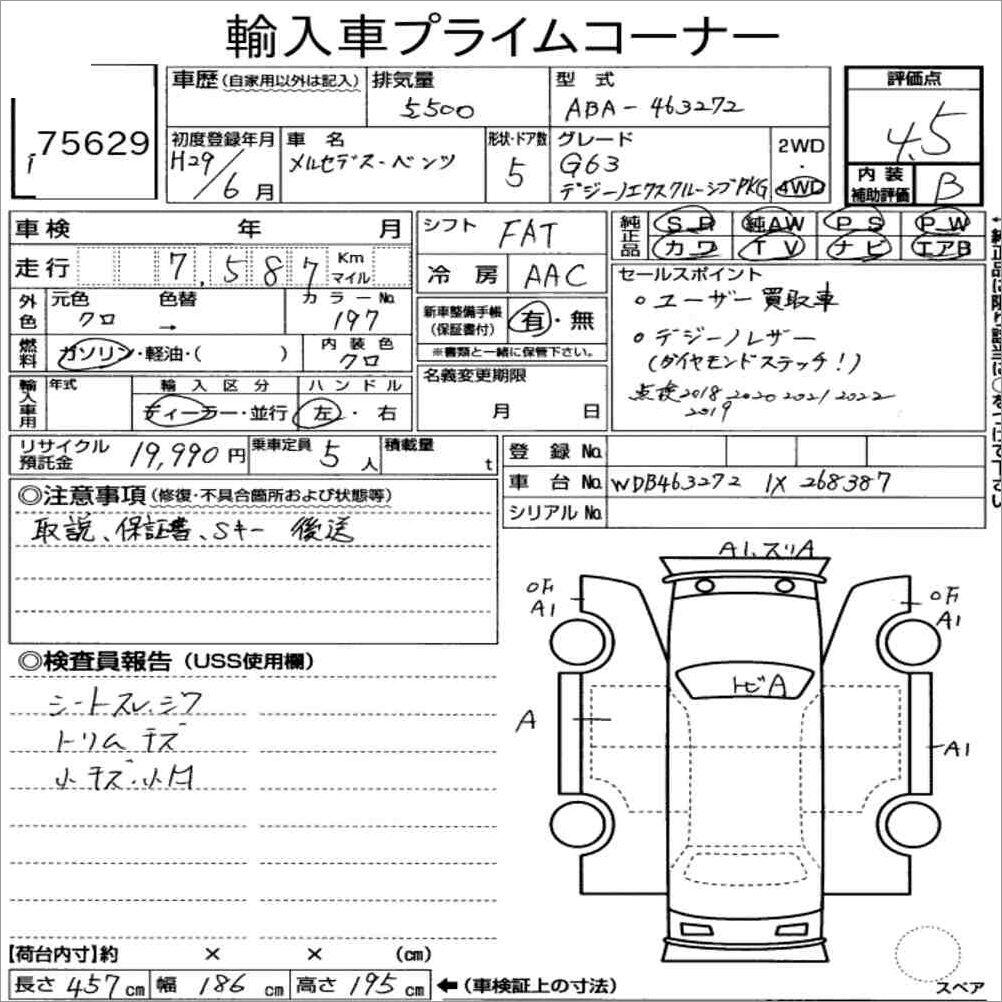 輸入車プライムコーナー
75629
車歴(自家用以外は記入)
排気量
5500
型式
ABA-463272
評価点
4.5
内装補助評価
B
初度登録年月
H29/6月
車名
メルセデス・ベンツ
形状・ドア数
5
グレード
G63
デジーノエクスクルーシブPKG
2WD・4WD
車検 年 月
シフト
FAT
純正品
SR 純AW PS PW
カワ TV ナビ エアB
走行
7,587
Km
マイル
冷房
AAC
セールスポイント
○ユーザー買取車
○デジーノレザー
(ダイヤモンドステッチ!)
点検2018 2020 2021 2022
2019
外色
元色
クロ
色替
→
カラーNo.
197
新車整備手帳
(保証書付)
有・無
※書類と一緒に保管下さい。
燃料
ガソリン・軽油・( )
内装色
クロ
名義変更期限
月 日
輸入車用
年式
輸入区分
ディーラー・並行
ハンドル
左・右
リサイクル預託金
19,990円
乗車定員
5人
積載量
t
登録No.
車台No.
WDB463272 1X 268387
シリアルNo.
◎注意事項(修復・不具合箇所および状態等)
取説、保証書、Sキー 後送
◎検査員報告(USS使用欄)
シートスレ、シワ
トリムキズ
小キズ・小凹
A1、スリA
A1
A1
トビA
A
A1
【荷台内寸】約 × × (cm)
長さ457cm 幅186cm 高さ195cm
←(車検証上の寸法)
スペア